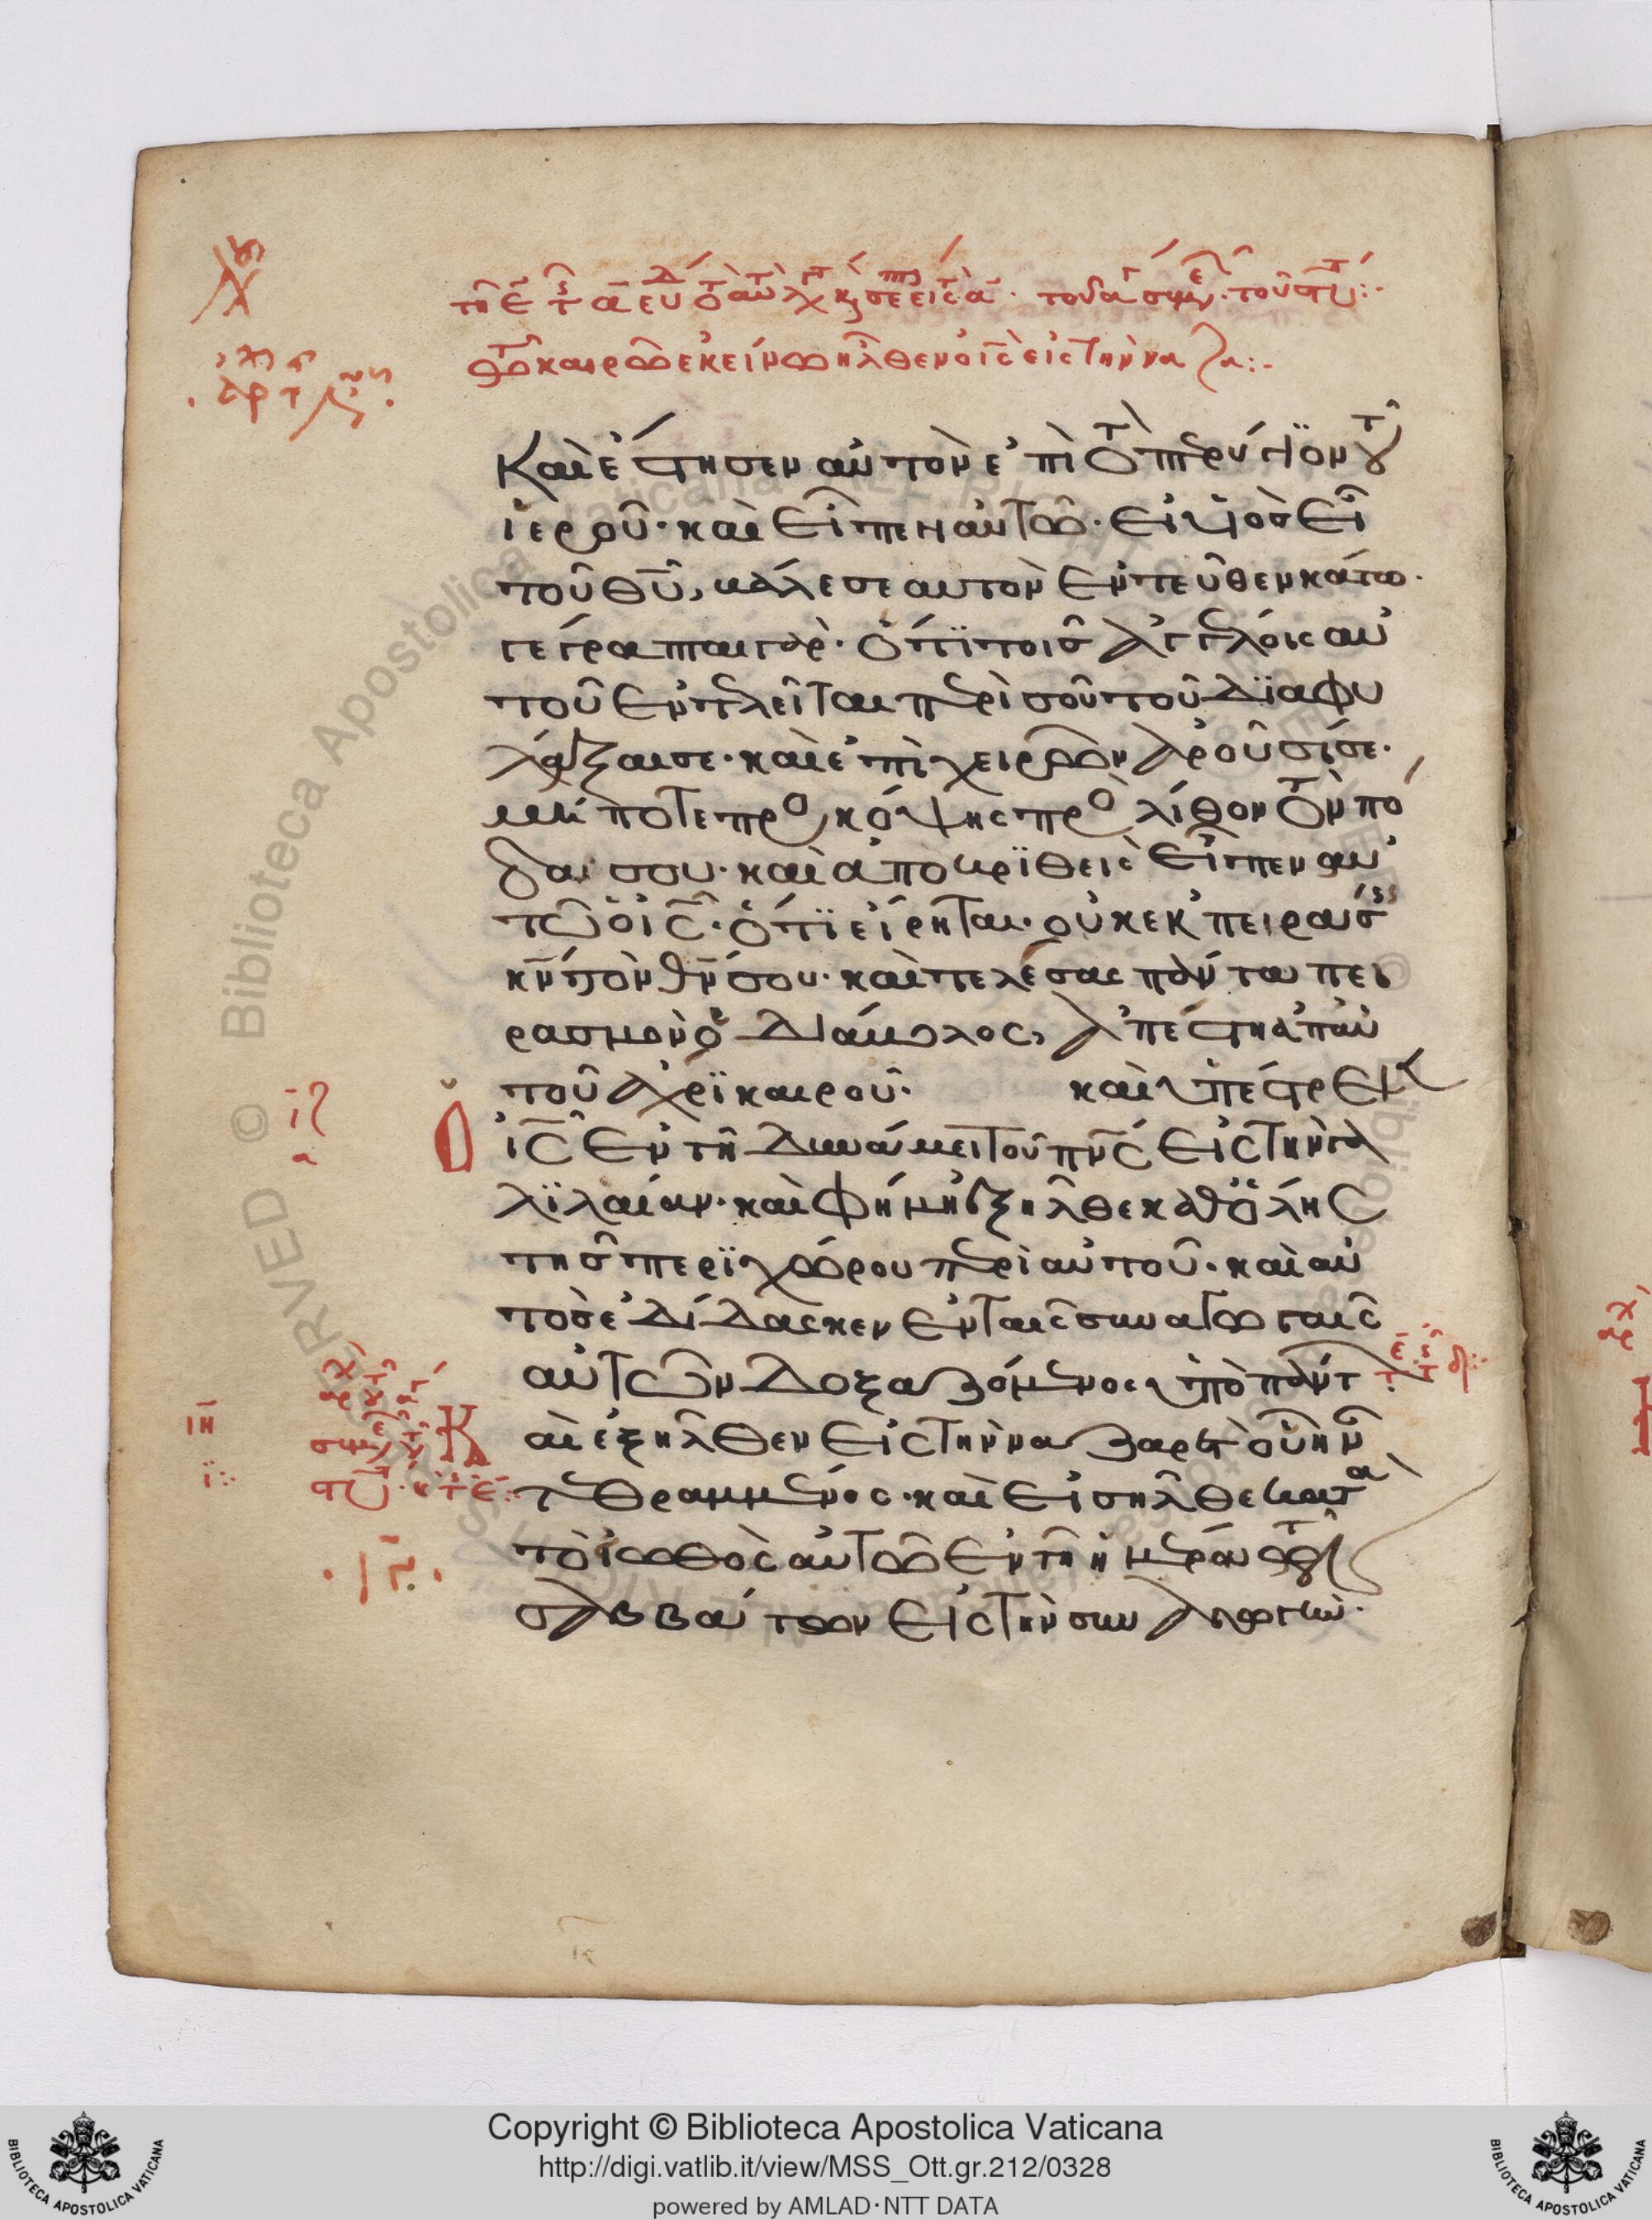 τῷ καιρῷ ἐκείνῳ ἦλθεν ὁ ις εἰς τὴν να
Καὶ ἔστησεν αὐτὸν ἐπὶ τὸ πτερύγϊον τοῦ
ἱεροῦ· καὶ εἶπεν αὐτῷ· εἰ υἱὸς εἶ
τοῦ θυ, βάλε σεαυτὸν ἐντεῦθεν κάτω·
γέγραπται γὰρ· ὅτϊ τοῖς ἀγγέλοις αὐ
τοῦ ἐντελεῖται περὶ σοῦ τοῦ δϊαφυ
λάξαι σε· καὶ ἐπὶ χειρῶν ἀροῦσί σε·
μήποτε προσκόψης πρὸς λίθον τὸν πό
δα σου· καὶ ἀποκρϊθεὶς εἶπεν αὐ
τῶ ὁ ις· ὅτϊ εἴρηται· οὐκ ἐκπειράσεις
κν τὸν θν σου· καὶ τελέσας πάντα πει
ρασμὸν ὁ διάβολος, ἀπέστη ἀπ αὐ
τοῦ ἄχρϊ καιροῦ· καὶ ὑπέστρεψεν
Ὁ ις ἐν τῇ δυνάμει τοῦ πνς εἰς τὴν γα
λϊλαίαν· καὶ φήμη ἐξῆλθε καθ ὅλης
τῆς περϊχώρου περὶ αὐτοῦ· καὶ αὐ
τὸς ἐδίδασκεν ἐν ταῖς συναγωγαῖς
αὐτῶν δοξαζόμενος ὑπὸ πάντων
Καὶ ἐξῆλθεν εἰς τὴν ναζαρὲτ οὗ ἦν
τεθραμμένος· καὶ εἰσῆλθε κατὰ
τὸ εἰωθὸς αὐτῷ ἐν τῇ ἡμέρα τῶν
σαββάτων εἰς τὴν συναγωγήν·
ιζ
α
ιη
ι
Copyright © Biblioteca Apostolica Vaticana
http://digi.vatlib.it/view/MSS_Ott.gr.212/0328
powered by AMLAD·NTT DATA
BIBLIOTECA APOSTOLICA VATICANA
BIBLIOTECA APOSTOLICA VATICANA